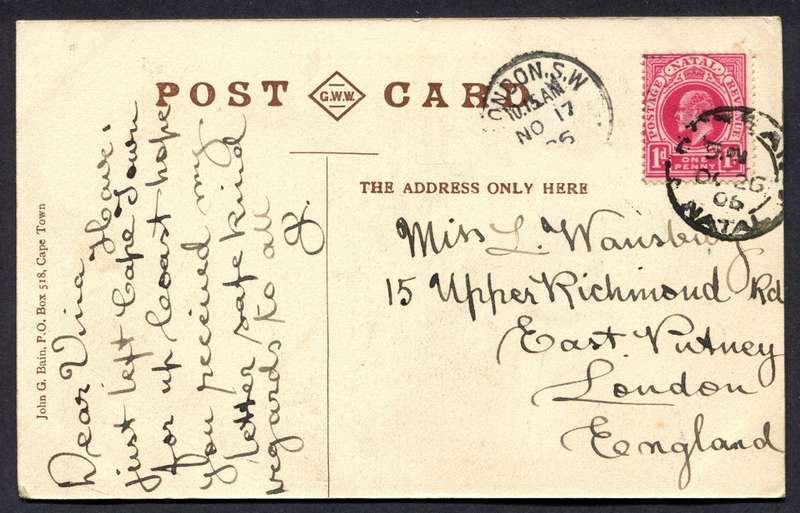 POST G.W.W. CARD
LONDON. S.W
10.15 AM
NO 17
06
NATAL
POSTAGE REVENUE
1d ONE PENNY 1d
OC 26
06
NATAL
THE ADDRESS ONLY HERE
John G. Bain, P.O. Box 518, Cape Town
Dear Vina Have
just left Cape Town
for up Coast hope
you received my
letter safe kind
regards to all
Miss L. Wansbury
15 Upper Richmond Rd
East Putney
London
England